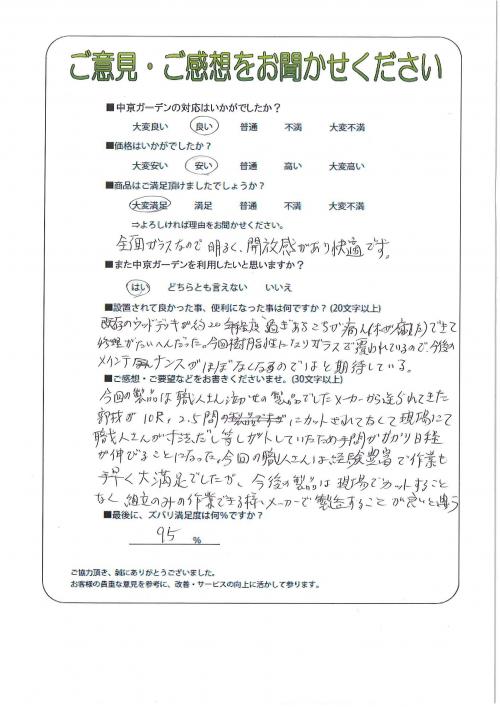 ご意見・ご感想をお聞かせください
■中京ガーデンの対応はいかがでしたか？
大変良い 良い 普通 不満 大変不満
■価格はいかがでしたか？
大変安い 安い 普通 高い 大変高い
■商品はご満足頂けましたでしょうか？
大変満足 満足 普通 不満 大変不満
⇒よろしければ理由をお聞かせください。
全面ガラスなので明るく、開放感があり快適です。
■また中京ガーデンを利用したいと思いますか？
はい どちらとも言えない いいえ
■設置されて良かった事、便利になった事は何ですか？(20文字以上)
既存のウッドデッキが約20年程度過ぎあちこちが できて
修理がたいへんだった。今回樹脂性になりガラスで覆われているので、今後の
メインテナンスがほぼなくなるのではと期待している。
■ご感想・ご要望などをお書きくださいませ。(30文字以上)
今回の製品は職人さん泣かせの製品でしたメーカーから送られてきた
部材が10尺、2.5間 にカットされてなくて現場にて
職人さんが寸法だし等しカットしていたため手間がかかり日程
が伸びることになった。今回の職人さんは経験豊富で作業も
手早く大満足でしたが、今後の製品は現場でカットすること
なく組立のみの作業できる様、メーカーで製造することが良いと思う
■最後に、ズバリ満足度は何％ですか？
95 ％
ご協力頂き、誠にありがとうございました。
お客様の貴重な意見を参考に、改善・サービスの向上に活かして参ります。